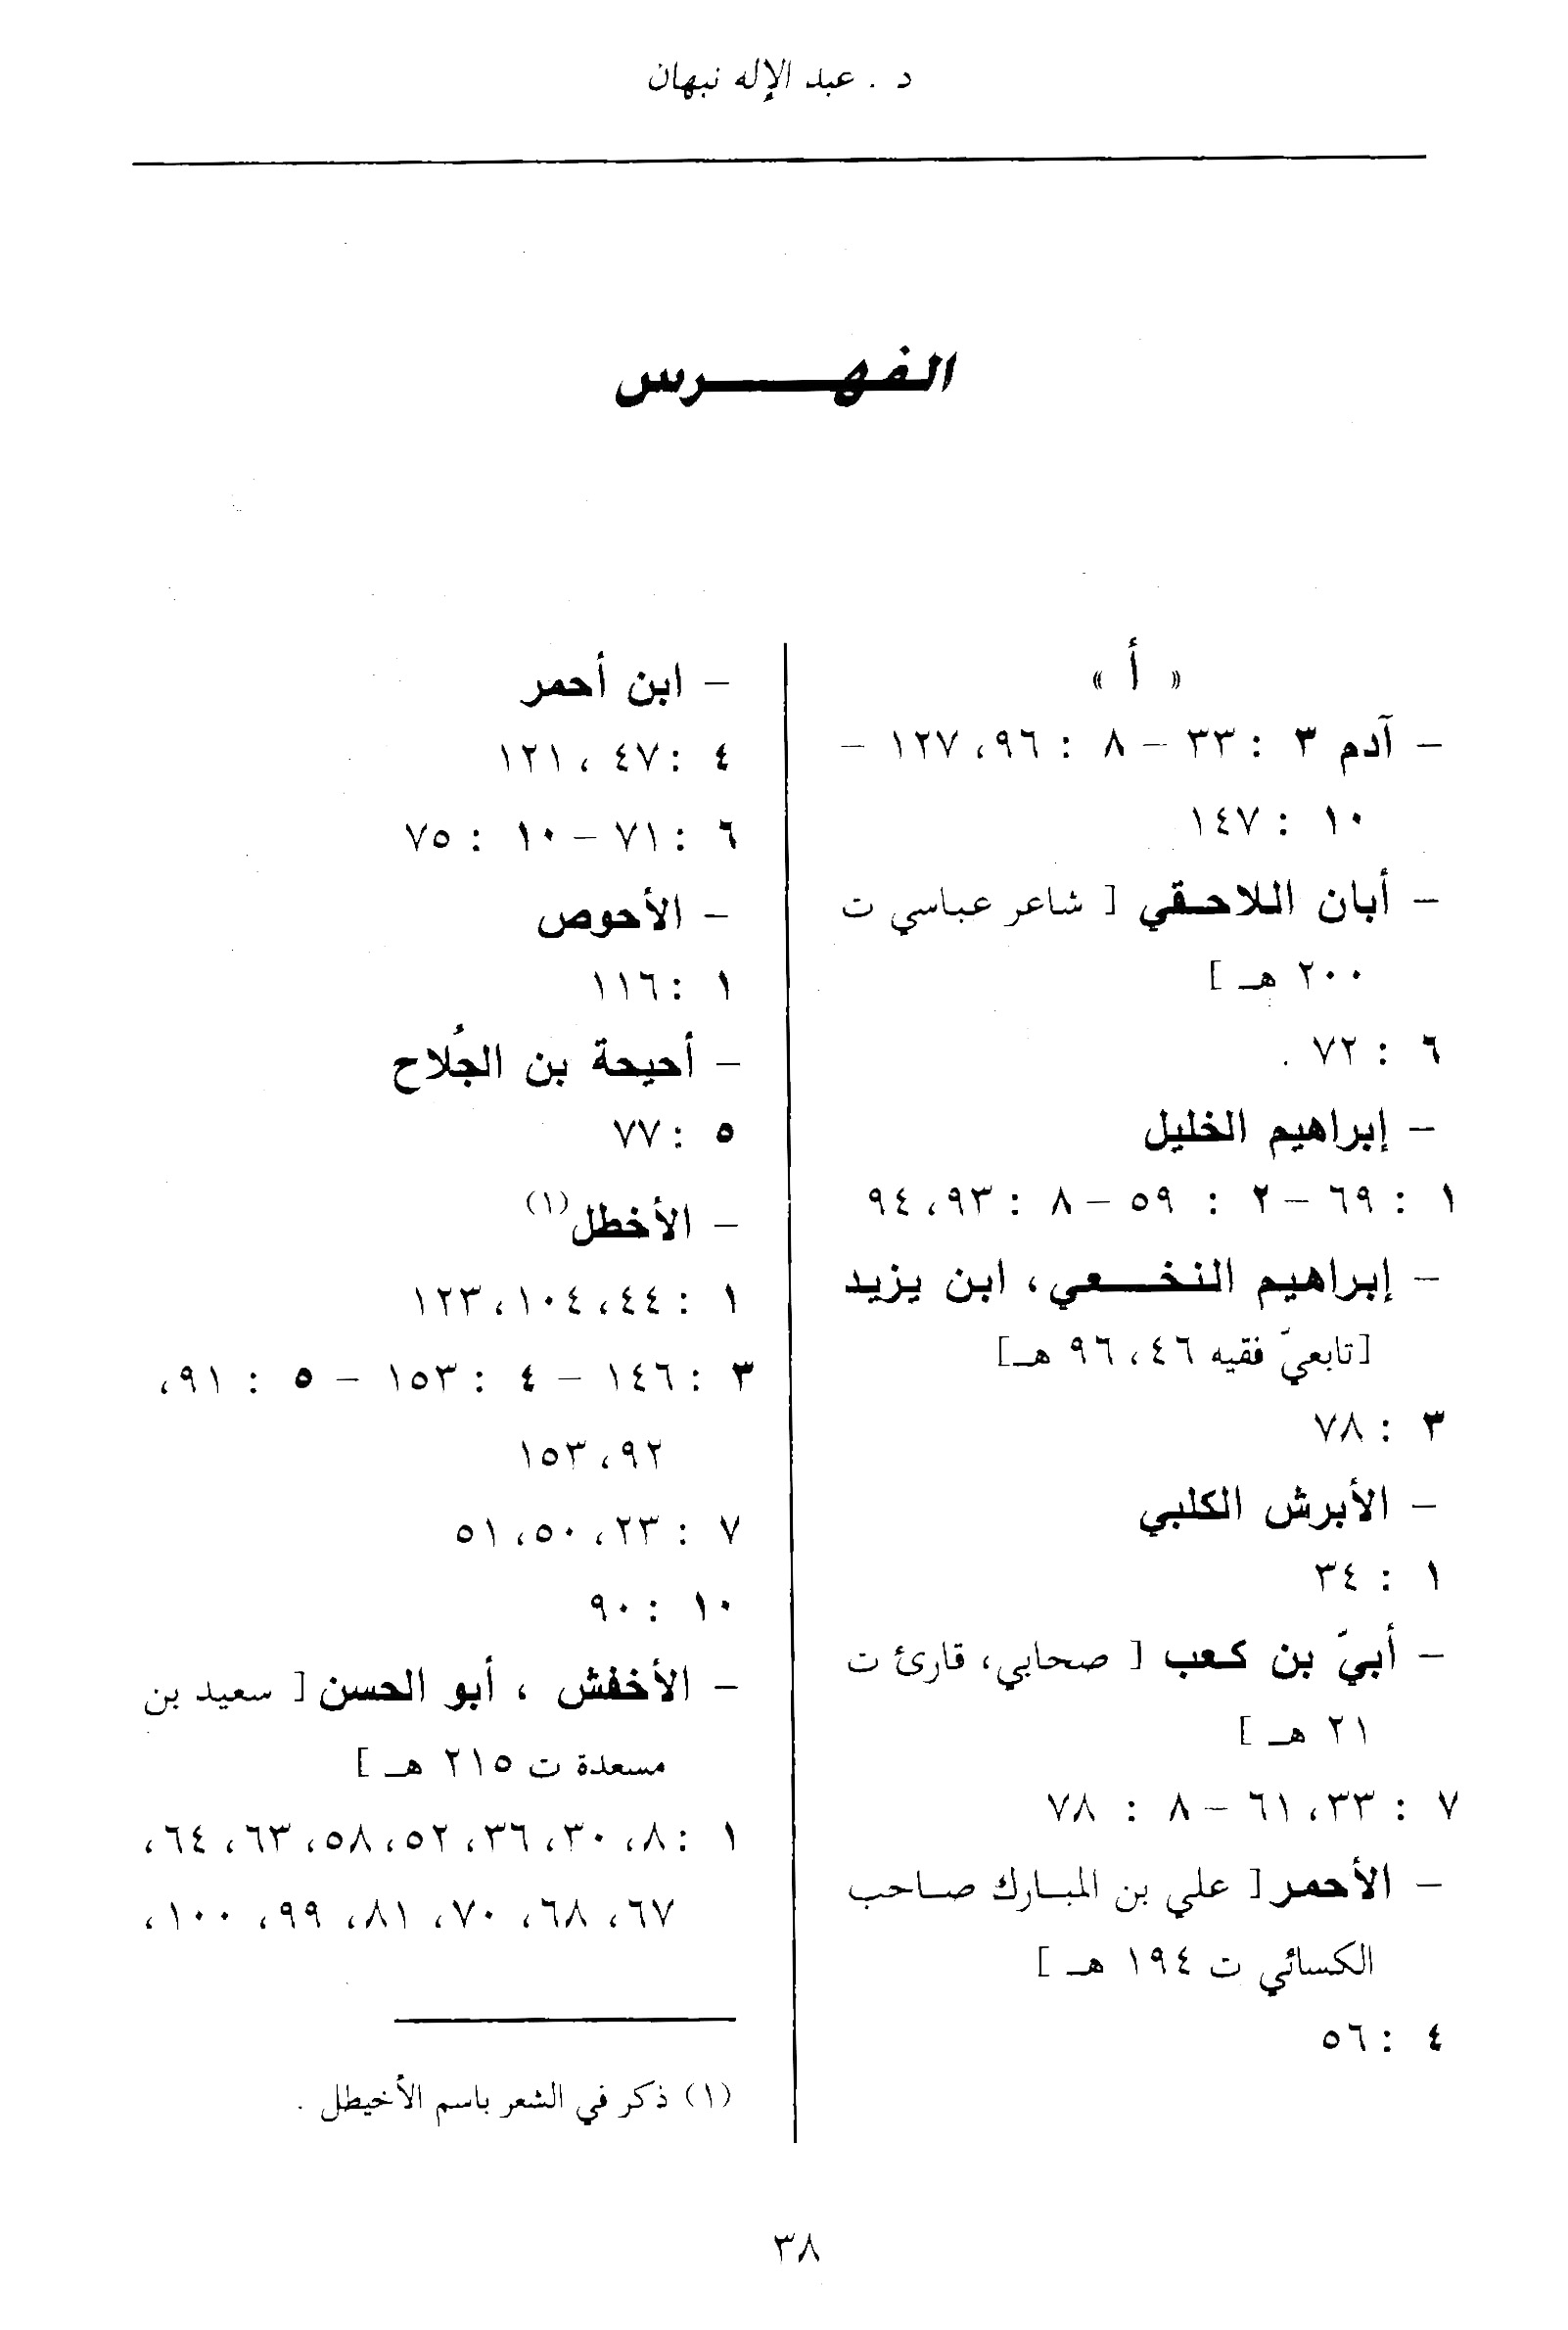 د . عبد الإله نبهان
الفهـــــرس
« أ »
– آدم ٣ : ٣٣ – ٨ : ٩٦، ١٢٧ –
١٠ : ١٤٧
– أبان اللاحـقي [ شاعر عباسي ت
٢٠٠ هـ ]
٦ : ٧٢ .
– إبراهيم الخليل
١ : ٦٩ – ٢ : ٥٩ – ٨ : ٩٣، ٩٤
– إبراهيم النخـــعي، ابن يزيد
[تابعيّ فقيه ٤٦، ٩٦ هـ]
٣ : ٧٨
– الأبرش الكلبي
١ : ٣٤
– أبيّ بن كعب [ صحابي، قارئ ت
٢١ هـ ]
٧ : ٣٣، ٦١ – ٨ : ٧٨
– الأحمر [ علي بن المبـارك صـاحب
الكسائي ت ١٩٤ هـ ]
٤ : ٥٦
– ابن أحمر
٤ : ٤٧ ، ١٢١
٦ : ٧١ – ١٠ : ٧٥
– الأحوص
١ : ١١٦
– أحيحة بن الجُلاح
٥ : ٧٧
– الأخطل(١)
١ : ٤٤، ١٠٤، ١٢٣
٣ : ١٤٦ – ٤ : ١٥٣ – ٥ : ٩١،
٩٢، ١٥٣
٧ : ٢٣، ٥٠، ٥١
١٠ : ٩٠
– الأخفش ، أبو الحسن [ سعيد بن
مسعدة ت ٢١٥ هـ ]
١ : ٨، ٣٠، ٣٦، ٥٢، ٥٨، ٦٣، ٦٤،
٦٧، ٦٨، ٧٠، ٨١، ٩٩، ١٠٠،
(١) ذكر في الشعر باسم الأخيطل .
٣٨